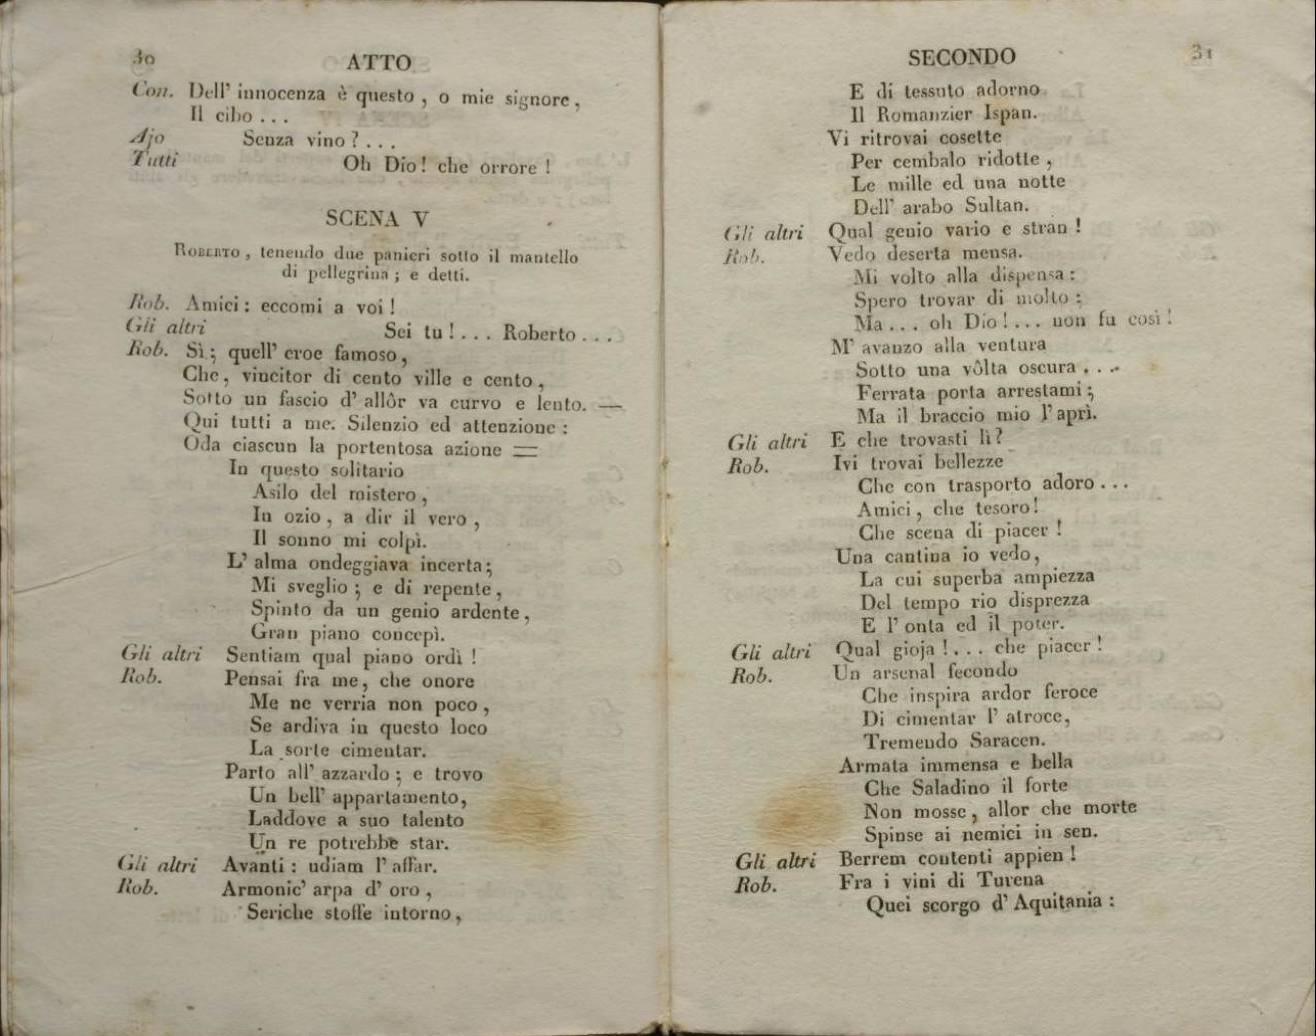 30
ATTO
Con. Dell' innocenza è questo, o mie signore,
Il cibo...
Ajo Senza vino?...
Tutti Oh Dio! che orrore!
SCENA V
ROBERTO, tenendo due panieri sotto il mantello
di pellegrina; e detti.
Rob. Amici: eccomi a voi!
Gli altri Sei tu!... Roberto...
Rob. Sì; quell' eroe famoso,
Che, vincitor di cento ville e cento,
Sotto un fascio d' allôr va curvo e lento. —
Qui tutti a me. Silenzio ed attenzione:
Oda ciascun la portentosa azione =
In questo solitario
Asilo del mistero,
In ozio, a dir il vero,
Il sonno mi colpì.
L' alma ondeggiava incerta;
Mi sveglio; e di repente,
Spinto da un genio ardente,
Gran piano concepì.
Gli altri Sentiam qual piano ordì!
Rob. Pensai fra me, che onore
Me ne verria non poco,
Se ardiva in questo loco
La sorte cimentar.
Parto all' azzardo; e trovo
Un bell' appartamento,
Laddove a suo talento
Un re potrebbe star.
Gli altri Avanti: udiam l' affar.
Rob. Armonic' arpa d' oro,
Seriche stoffe intorno,
SECONDO
31
E di tessuto adorno
Il Romanzier Ispan.
Vi ritrovai cosette
Per cembalo ridotte,
Le mille ed una notte
Dell' arabo Sultan.
Gli altri Qual genio vario e stran!
Rob. Vedo deserta mensa.
Mi volto alla dispensa:
Spero trovar di molto;
Ma... oh Dio!... non fu così!
M' avanzo alla ventura
Sotto una vôlta oscura...
Ferrata porta arrestami;
Ma il braccio mio l' aprì.
Gli altri E che trovasti lì?
Rob. Ivi trovai bellezze
Che con trasporto adoro...
Amici, che tesoro!
Che scena di piacer!
Una cantina io vedo,
La cui superba ampiezza
Del tempo rio disprezza
E l' onta ed il poter.
Gli altri Qual gioja!... che piacer!
Rob. Un arsenal fecondo
Che inspira ardor feroce
Di cimentar l' atroce,
Tremendo Saracen.
Armata immensa e bella
Che Saladino il forte
Non mosse, allor che morte
Spinse ai nemici in sen.
Gli altri Berrem contenti appien!
Rob. Fra i vini di Turena
Quei scorgo d' Aquitania: